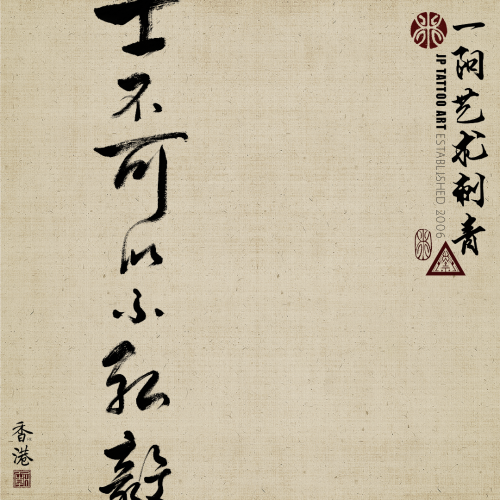 一阳艺术刺青
JP TATTOO ART ESTABLISHED 2006
士不可以不弘毅
香港